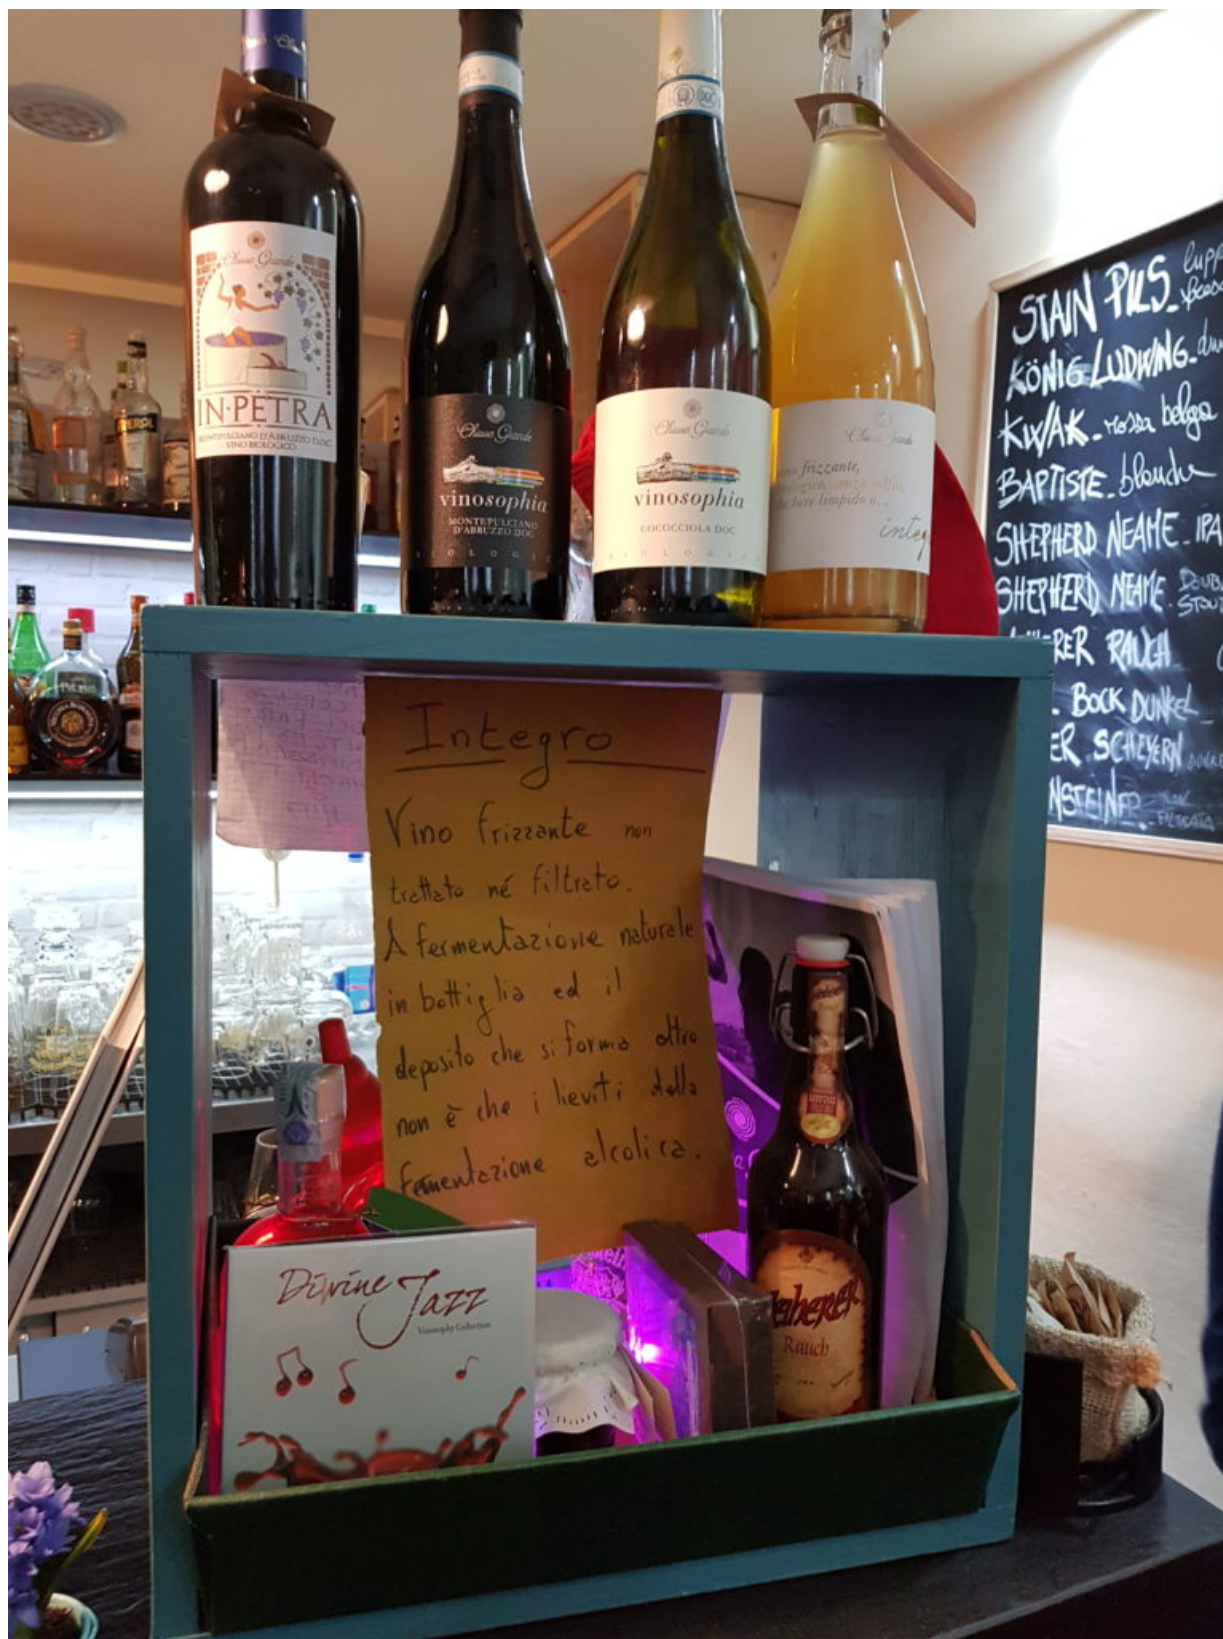 Chiusa Grande
IN·PETRA
MONTEPULCIANO D'ABRUZZO D.O.C.
VINO BIOLOGICO
Chiusa Grande
vinosophia
MONTEPULCIANO
D'ABRUZZO DOC
BIOLOGIC
Chiusa Grande
vinosophia
COCOCCIOLA DOC
BIOLOGIC
Chiusa Grande
frizzante,
senza solfiti,
bere limpido o...
integ
STAIN PILS
KÖNIG LUDWING
KWAK - rossa belga
BAPTISTE - blanche
SHEPHERD NEAME - IPA
SHEPHERD NEAME
RER RAUCH
BOCK DUNKEL
ER SCHEYERN
NSTEINER
Integro
Vino frizzante non
trattato né filtrato.
A fermentazione naturale
in bottiglia ed il
deposito che si forma altro
non è che i lieviti della
fermentazione alcolica.
Divine Jazz
Vinosophy Collection
Rauch